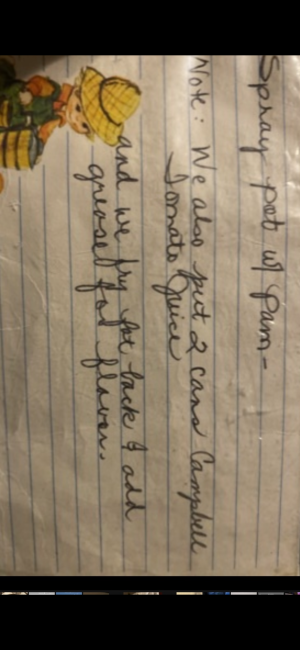 Spray pot w/ Pam -
Note: We also put 2 cans Campbell
Tomato Juice
and we fry fat back & add
grease for flavor.